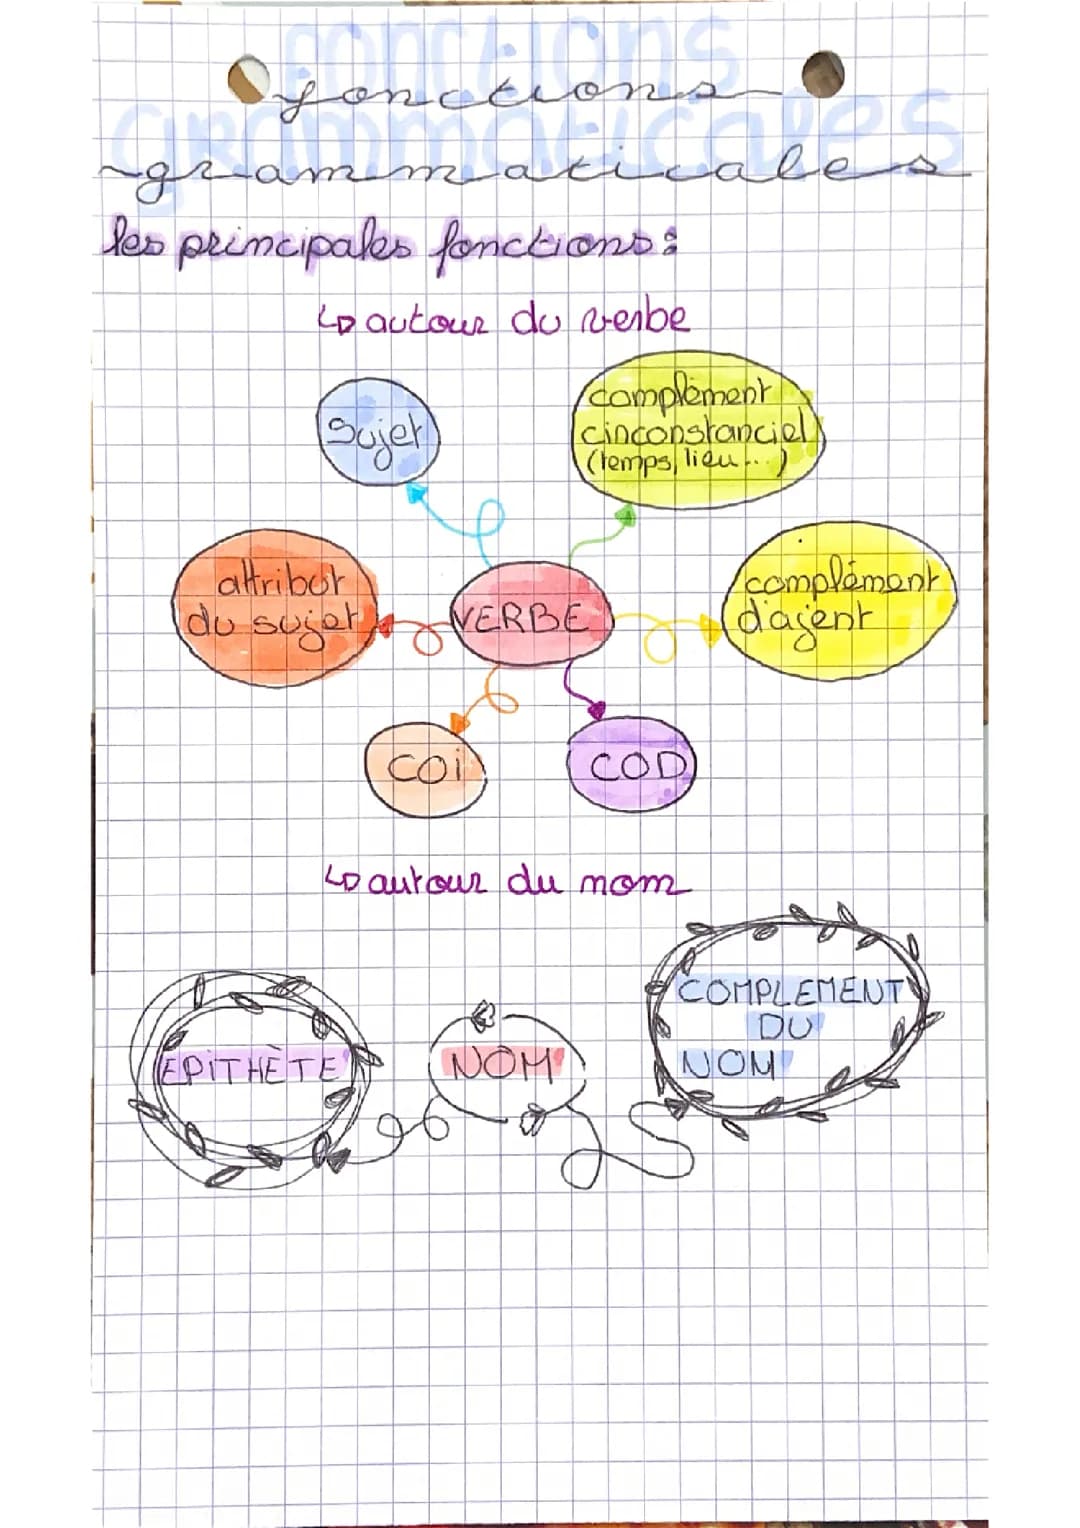 fonctions
grammaticales
fonctions
grammaticales
les principales fonctions :
↳ autour du verbe
Sujet
complément
cinconstanciel
(temps, lieu...)
attribut
du sujet
VERBE
complément
d'ajent
COi
COD
↳ autour du nom
EPiTHÈTE
NOM
COMPLEMENT
DU
NOM